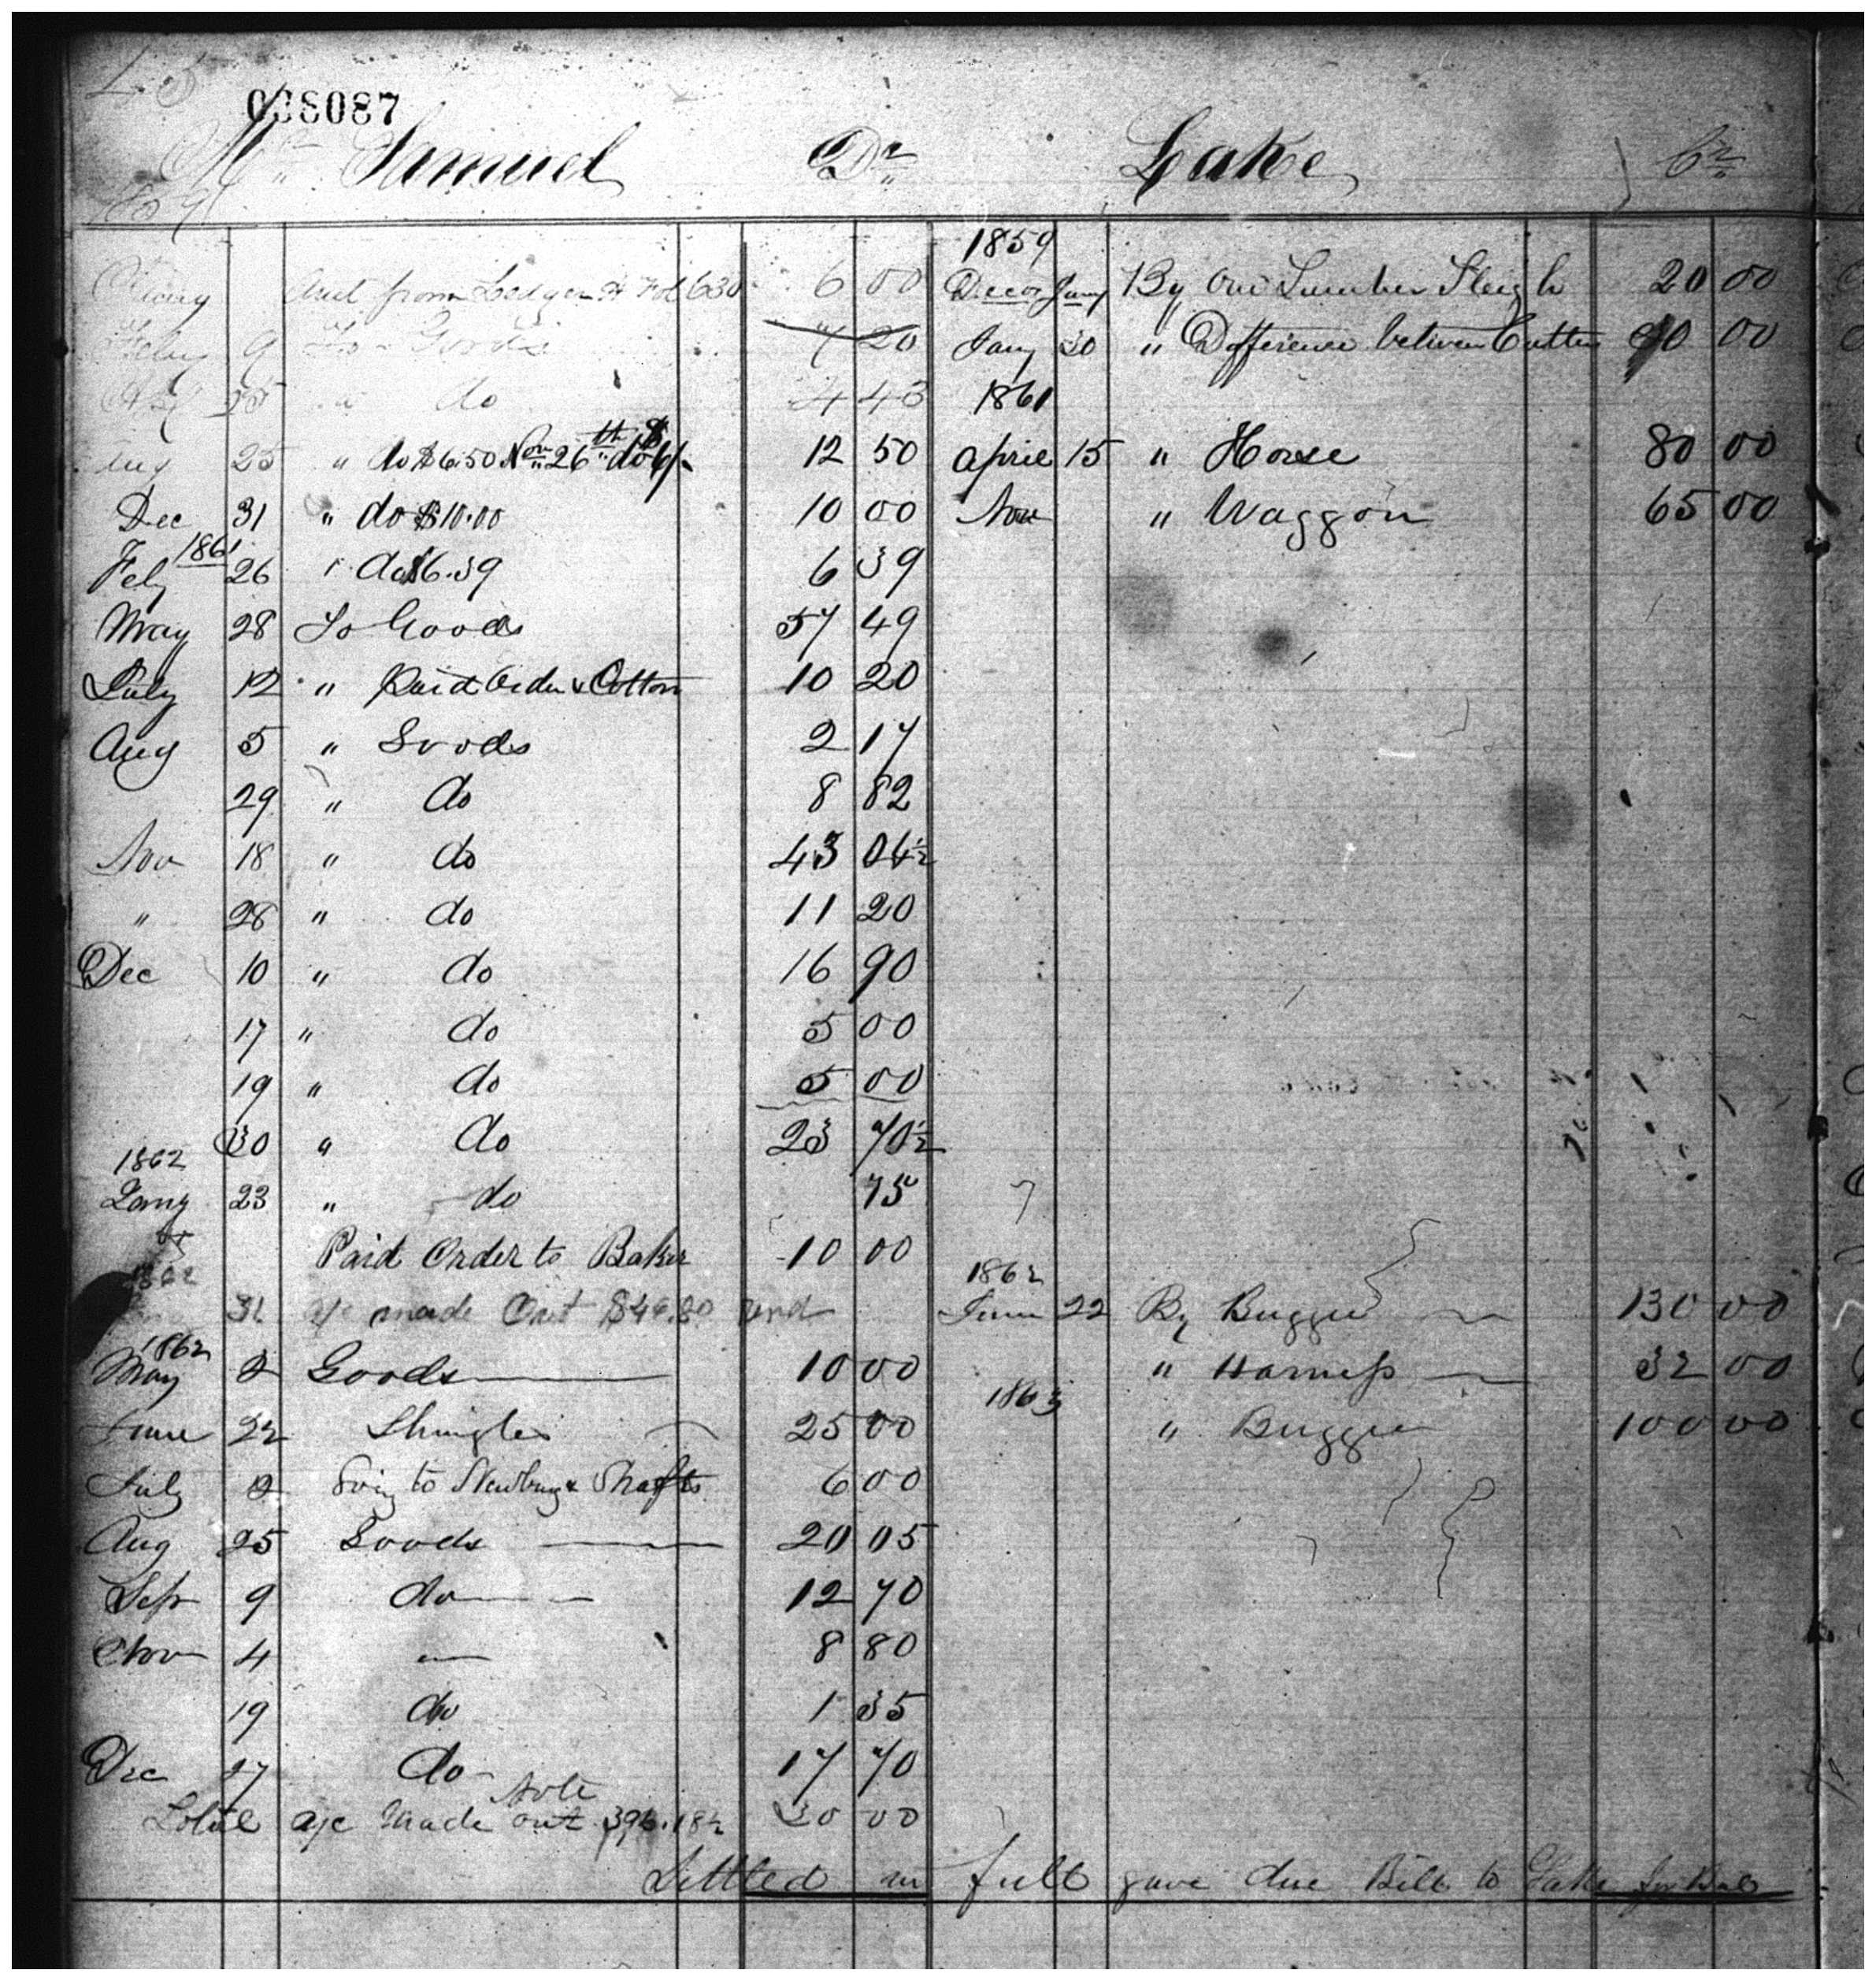 038087
Mr Samuel Dr Lake Cr
1859
Amt from Ledger A Fol 630 6 00 Decor Jany By One Lumber Sleigh 20 00
Feby 9 To Goods 7 20 Jany 30 " Difference between Cutters 00
25 " do 4 43 1861
Aug 25 " do $6.50 Nov 26th do $6/- 12 50 April 15 " Horse 80 00
Dec 31 " do $10.00 10 00 Nov " Waggon 65 00
1861
Feby 26 " do $6.39 6 39
May 28 To Goods 57 49
July 12 " Paid Order & Cotton 10 20
Aug 5 " Goods 2 17
29 " do 8 82
Nov 18 " do 43 04½
" 28 " do 11 20
Dec 10 " do 16 90
17 " do 5 00
19 " do 5 00
30 " do 23 70½
1862
Jany 23 " do 75
Paid Order to Baker 10 00
1862 1862
31 a/c made Out $46.80 and June 22 By Buggie 130 00
1862
May 2 Goods 10 00 " Harness 32 00
1863
June 22 Shingles 25 00 " Buggie 100 00
July 2 Going to Newburg & Shafts 6 00
Aug 25 Goods 20 05
Sep 9 do 12 70
Nov 4 8 80
19 do 1 35
Dec 17 do 17 70
Note
Total a/c Made out 396.18½ 30 00
Settled in full gave due Bill to Lake for Bal